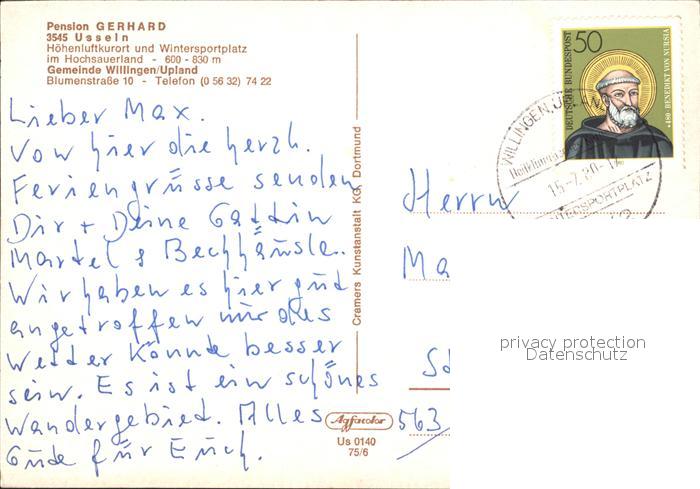 Pension GERHARD
3545 Usseln
Höhenluftkurort und Wintersportplatz
im Hochsauerland - 600 - 830 m
Gemeinde Willingen/Upland
Blumenstraße 10 - Telefon (0 56 32) 74 22
Lieber Max.
Von hier die herzl.
Feriengrüsse senden
Dir + Deine Gattin
Wir haben es hier gut
angetroffen nur das
Wetter könnte besser
sein. Es ist ein schönes
Wandergebiet. Alles
Gude für Euch.
Cramers Kunstanstalt KG, Dortmund
Agfacolor
Us 0140
75/6
50
DEUTSCHE BUNDESPOST
*480 · BENEDIKT VON NURSIA
WILLINGEN, UPLAND
15.-7.80.-17
WINTERSPORTPLATZ
Herrn
Ma
563
privacy protection
Datenschutz